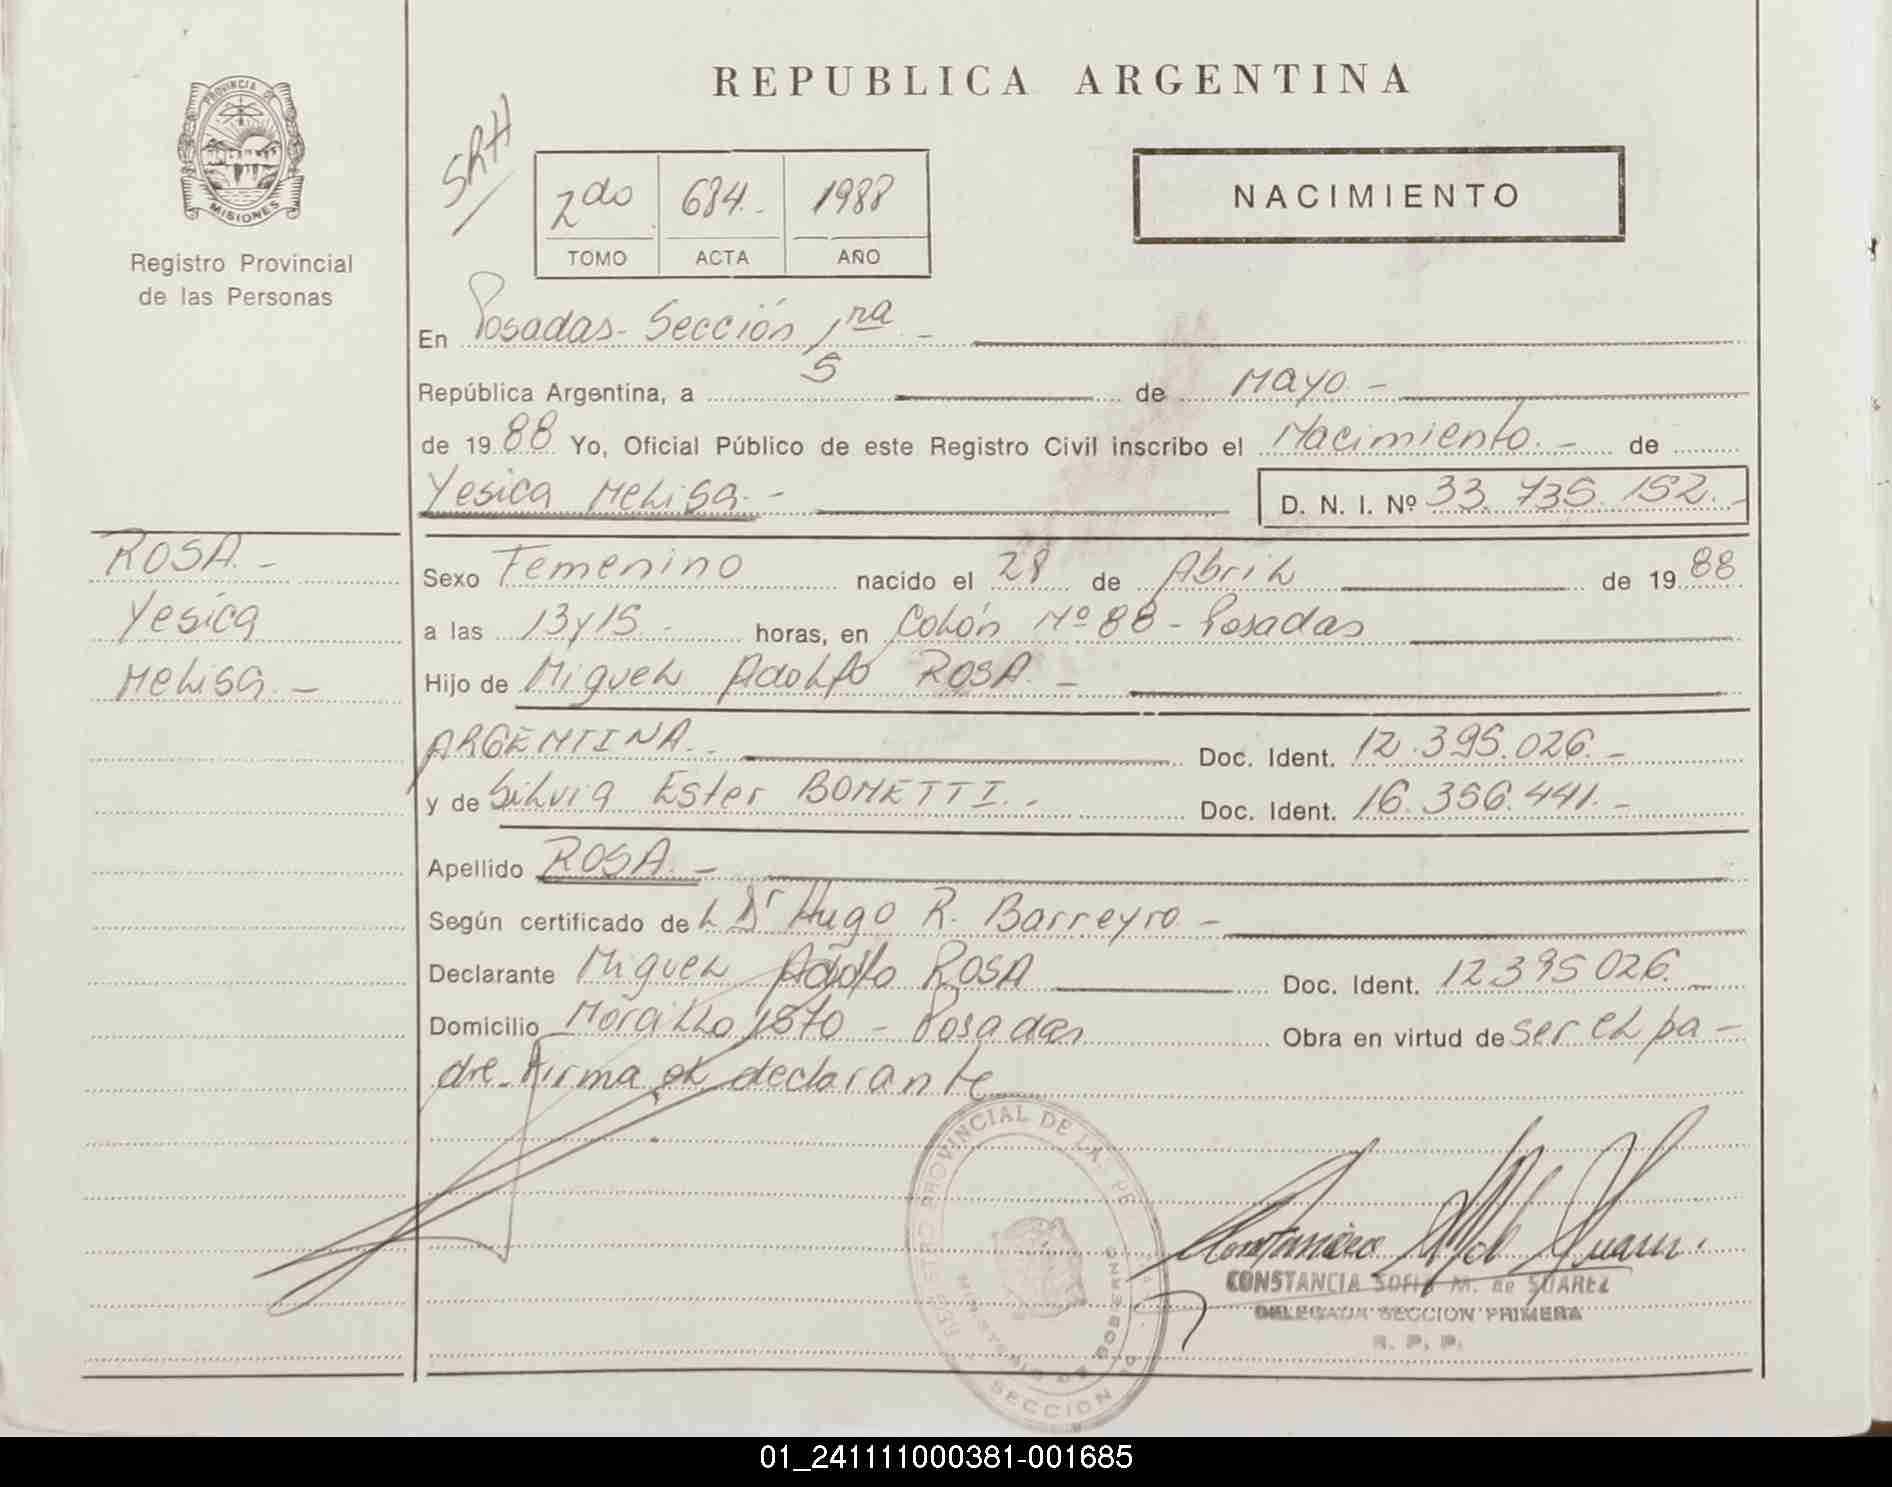 REPUBLICA ARGENTINA
PROVINCIA DE
MISIONES
Registro Provincial
de las Personas
SRH
2do 684.- 1988
TOMO ACTA AÑO
NACIMIENTO
En Posadas- Sección 1ra.-
República Argentina, a 5 de Mayo.-
de 1988 Yo, Oficial Público de este Registro Civil inscribo el Nacimiento.- de
Yesica Melisa.- D. N. I. Nº 33.735.152.-
ROSA.-
Yesica
Melisa.-
Sexo Femenino nacido el 28 de Abril de 1988
a las 13y15.- horas, en Colón Nº 88 - Posadas
Hijo de Miguel Adolfo ROSA.-
ARGENTINA.- Doc. Ident. 12.395.026.-
y de Silvia Ester BONETTI.- Doc. Ident. 16.356.441.-
Apellido ROSA.-
Según certificado de L Dr Hugo R. Barreyro.-
Declarante Miguel Adolfo ROSA Doc. Ident. 12395026.-
Domicilio 1870 - Posadas Obra en virtud de ser el pa-
dre. Firma el declarante
REGISTRO PROVINCIAL DE LA. PE
MINISTERIO DE GOBIERNO
SECCION
CONSTANCIA SOFIA M. de SUAREZ
DELEGADA SECCION PRIMERA
R. P. P.
01_241111000381-001685